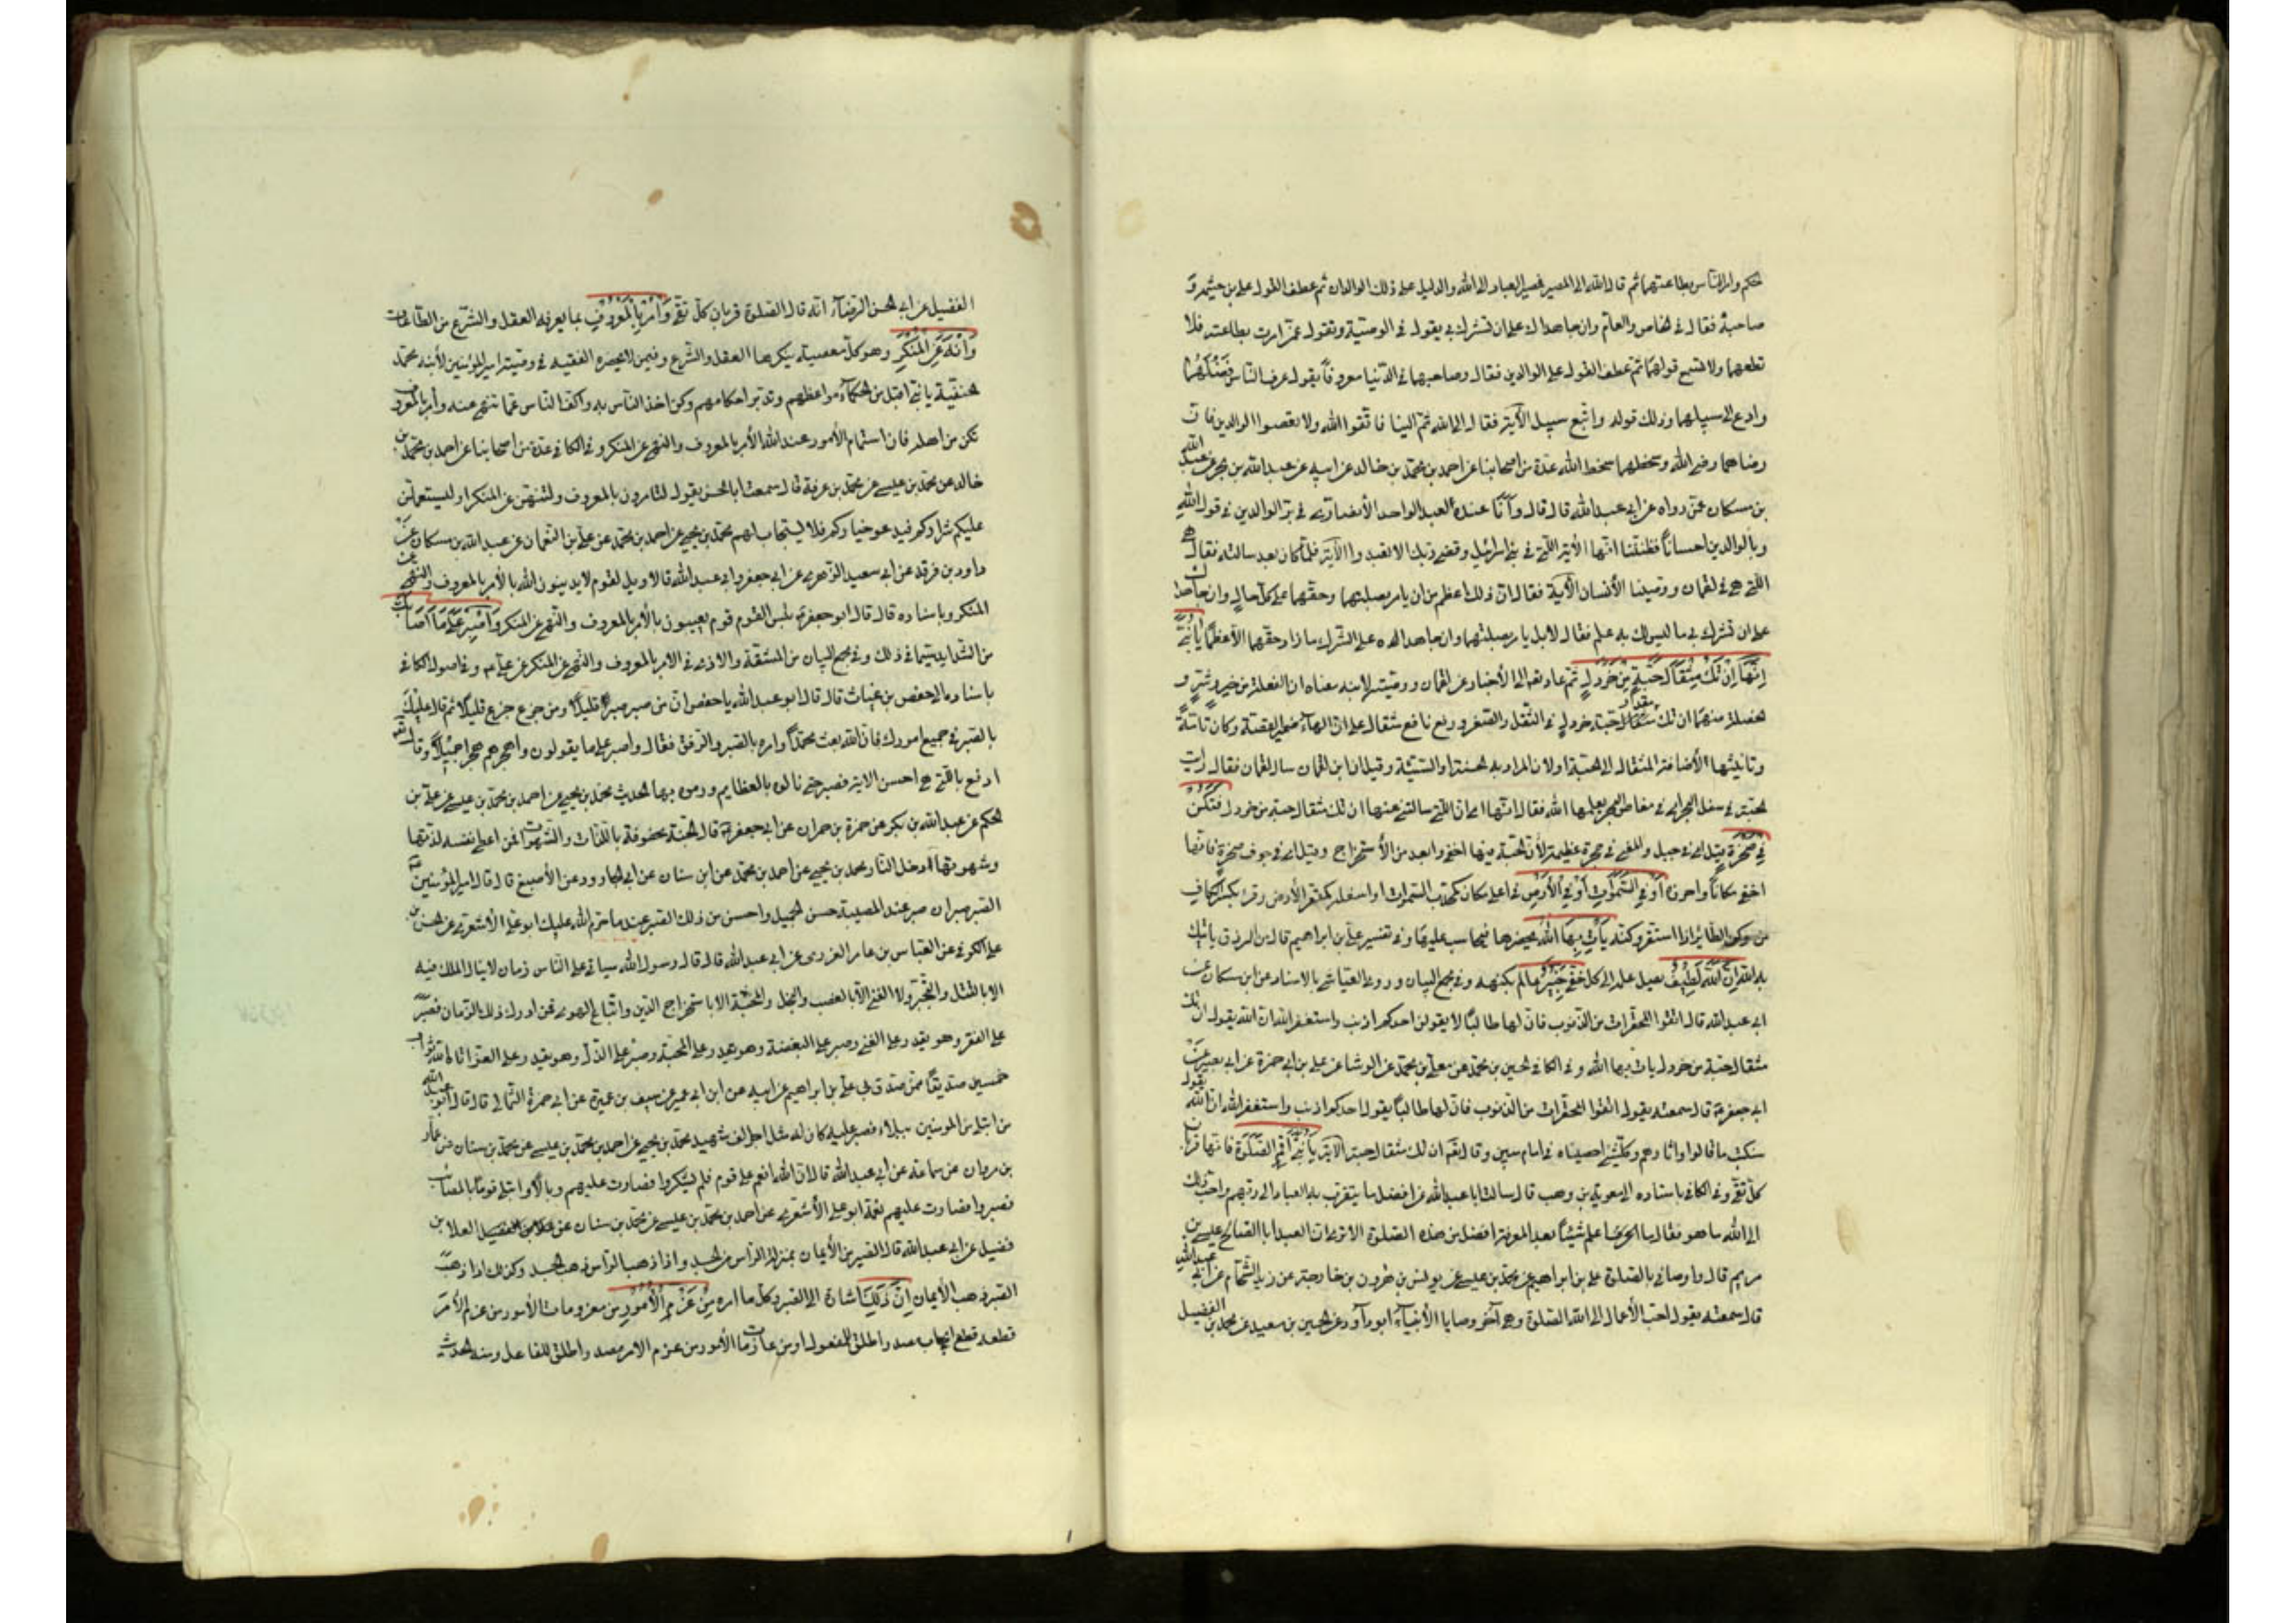 الحكم وامر الناس بطاعتهما ثم قال الله الى المصير فمصير العباد الى الله والدليل على ذلك الوالدان ثم عطف القول على بن حيثمه و
صاحبه فقال في الخاص والعام وان جاهداك على ان تشرك بي يقول في الوصية وتقول عمن امرت بطاعته فلا
تطعهما ولا تسمع قولهما ثم عطف القول على الوالدين فقال وصاحبهما في الدنيا معروفاً يقول عرف الناس فضلهما
وادع الى سبيلهما وذلك قوله واتبع سبيل الآية فقال الى الله ثم الينا فاتقوا الله ولا تعصوا الوالدين فان
رضاهما رضى الله وسخطهما سخط الله عدة من اصحابنا عن احمد بن محمد بن خالد عن ابيه عن عبد الله بن بحر عن عبد الله
بن مسكان عمن رواه عن ابي عبد الله قال قال وأنا عنده لعبد الواحد الأنصارى في بر الوالدين في قول الله
وبالوالدين احساناً فظننا انها الآية التي في بني اسرائيل وقضى ربك الا تعبدوا الآية فلما كان بعد سالته فقال هي
التي هي في لقمان ووصينا الأنسان الآية فقال ان ذلك اعظم من ان يامر بصلتهما وحقهما على كل حال وان جاهداك
على ان تشرك بي ما ليس لك به علم فقال لا بل يامر بصلتهما وان جاهداه على الشرك ما زاد حقهما الا عظماً يَا بُنَيَّ
إِنَّهَا إِنْ تَكُ مِثْقَالَ حَبَّةٍ مِنْ خَرْدَلٍ ثم عاد الى الأخبار عن لقمان ووصيته لابنه معناه ان الفعلة من خير وشر و
الخصلة منهما ان تك مقدار حبة خردل في الثقل والصغر ورفع نافع مثقال على ان الهاء ضمير القصة وكان تامة
وتانيثها لأضافة المثقال الى الحبة اولان المراد به الحسنة او السيئة وقيل ان ابن لقمان سال لقمان فقال ارايت
الحبة في سفل البحر اى في مغاص البحر يعلمها الله فقال انها اى ان التي سالتني عنها ان تك مثقال حبة من خردل فَتَكُنْ
فِي صَخْرَةٍ قيل اى في جبل والمعنى في صخرة عظيمة لأن الحبة فيها اخفى وابعد من الأستخراج وقيل اى في جوف صخرة فانها
اخفى مكاناً واحرزه أَوْ فِي السَّمَوَاتِ أَوْ فِي الْأَرْضِ في اعلى مكان كمحدب السموات او اسفله كمقعر الأرض وقرئ بكسر الكاف
من وكن الطائر اذا استقر وكنه يَأْتِ بِهَا اللَّهُ يحضرها فيحاسب عليها وفي تفسير علي بن ابراهيم قال من الرزق ياتيك
به الله إِنَّ اللَّهَ لَطِيفٌ يصل علمه الى كل خفي خَبِيرٌ عالم بكنهه وفي مجمع البيان وروى العياشي بالاسناد عن ابن مسكان عن
ابي عبد الله قال اتقوا المحقرات من الذنوب فان لها طالباً لا يقولن احدكم اذنب واستغفر الله ان الله يقول ان تك
مثقال حبة من خردل يات بها الله وفي الكافي الحسين بن محمد عن معلى بن محمد عن الوشا عن علي بن ابي حمزة عن ابي بصير عن
ابي جعفر قال سمعته يقول اتقوا المحقرات من الذنوب فان لها طالباً يقول احدكم اذنب واستغفر الله ان الله يقول
سنكتب ما قدموا واثارهم وكل شي احصيناه في امام مبين وقال انها ان تك مثقال حبة الآية يَا بُنَيَّ أَقِمِ الصَّلَوةَ فانها قربان
كل تقي وفي الكافي باسناده الى معوية بن وهب قال سالت ابا عبد الله عن افضل ما يتقرب به العباد الى ربهم واحب ذلك
الى الله ما هو فقال ما اعلم شيئاً بعد المعرفة افضل من هذه الصلوة الا ترى ان العبد الصالح عيسى بن
مريم قال واوصاني بالصلوة علي بن ابراهيم عن محمد بن عيسى عن يونس عن هرون بن خارجة عن زيد الشحام عن ابي عبد الله
قال سمعته يقول احب الأعمال الى الله الصلوة وهي آخر وصايا الأنبياء ابو داود عن الحسين بن سعيد عن محمد بن الفضيل
الفضيل عن ابي الحسن الرضا انه قال الصلوة قربان كل تقي وَأْمُرْ بِالْمَعْرُوفِ بما يعرفه العقل والشرع من الطاعات
وَانْهَ عَنِ الْمُنْكَرِ وهو كل معصية ينكرها العقل والشرع وفيمن لا يحضره الفقيه في وصية امير المؤمنين لأبنه محمد
الحنفية يا بني اقبل من الحكماء مواعظهم وتدبر احكامهم وكن اخذ الناس به واكف الناس عما تنهى عنه وامر بالمعروف
تكن من اهله فان استتمام الأمور عند الله الأمر بالمعروف والنهي عن المنكر وفي الكافي عدة من اصحابنا عن احمد بن محمد بن
خالد عن محمد بن عيسى عن محمد بن عرفة قال سمعت ابا الحسن يقول لتامرون بالمعروف ولتنهن عن المنكر او ليستعملن
عليكم شراركم فيدعو خياركم فلا يستجاب لهم محمد بن يحيى عن احمد بن محمد عن علي بن النعمان عن عبد الله بن مسكان عن
داود بن فرقد عن ابي سعيد الزهري عن ابي جعفر وابي عبد الله قالا ويل لقوم لا يدينون الله بالأمر بالمعروف والنهي عن
المنكر وباسناده قال قال ابو جعفر بئس القوم قوم يعيبون بالأمر بالمعروف والنهي عن المنكر وَاصْبِرْ عَلَى مَا أَصَابَكَ
من الشدايد سيما في ذلك وفي مجمع البيان من المشقة والاذى في الامر بالمعروف والنهي عن المنكر عن علي وفي اصول الكافي
باسناده الى حفص بن غياث قال قال ابو عبد الله يا حفص ان من صبر صبر قليلاً ومن جزع جزع قليلاً ثم قال عليك
بالصبر في جميع امورك فان الله بعث محمداً وامره بالصبر والرفق فقال واصبر على ما يقولون واهجرهم هجراً جميلاً وقال
ادفع بالتي هي احسن الاية فصبر حتى نالوه بالعظايم ورموه بها الحديث محمد بن يحيى عن احمد بن محمد بن عيسى عن علي بن
الحكم عن عبد الله بن بكير عن حمزة بن حمران عن ابي جعفر قال الجنة محفوفة باللذات والشهوات فمن اعطى نفسه لذتها
وشهوتها دخل النار محمد بن يحيى عن احمد بن محمد عن ابن سنان عن ابي الجارود عن الأصبغ قال قال امير المؤمنين
الصبر صبران صبر عند المصيبة حسن جميل واحسن من ذلك الصبر عند ما حرم الله عليك ابو علي الأشعري عن الحسن بن
علي الكوفي عن العباس بن عامر العزرمى عن ابي عبد الله قال قال رسول الله سياتي على الناس زمان لا ينال الملك فيه
الا بالقتل والتجبر ولا الغنى الا بالغصب والبخل والمحبة الا باستخراج الدين واتباع الهوى فمن ادرك ذلك الزمان فصبر
على الفقر وهو يقدر على الغنى وصبر على البغضة وهو يقدر على المحبة وصبر على الذل وهو يقدر على العز اتاه الله ثواب
خمسين صديقاً ممن صدق بي علي بن ابراهيم عن ابيه عن ابن ابي عمير عن سيف بن عميرة عن ابي حمزة الثمالي قال قال ابو عبد الله
من ابتلي من المومنين ببلاء فصبر عليه كان له مثل اجر الف شهيد محمد بن يحيى عن احمد بن محمد بن عيسى عن محمد بن سنان عن عمار
بن مروان عن سماعة عن ابي عبد الله قال ان الله انعم على قوم فلم يشكروا فصارت عليهم وبالاً وابتلى قوماً بالمصائب
فصبروا فصارت عليهم نعمة ابو علي الأشعري عن احمد بن محمد بن عيسى عن محمد بن سنان عن العلا بن
فضيل عن ابي عبد الله قال الصبر من الأيمان بمنزلة الراس من الجسد واذا ذهب الراس ذهب الجسد وكذلك اذا ذهب
الصبر ذهب الأيمان إِنَّ ذَلِكَ اشارة الى الصبر وكل ما امره مِنْ عَزْمِ الْأُمُورِ من معزومات الأمور من عزم الأمر
قطعه قطع ايجاب مصدر اطلق للمفعول او من عازمات الأمور من عزم الامر مصدر اطلق للفاعل ومنه الحديث